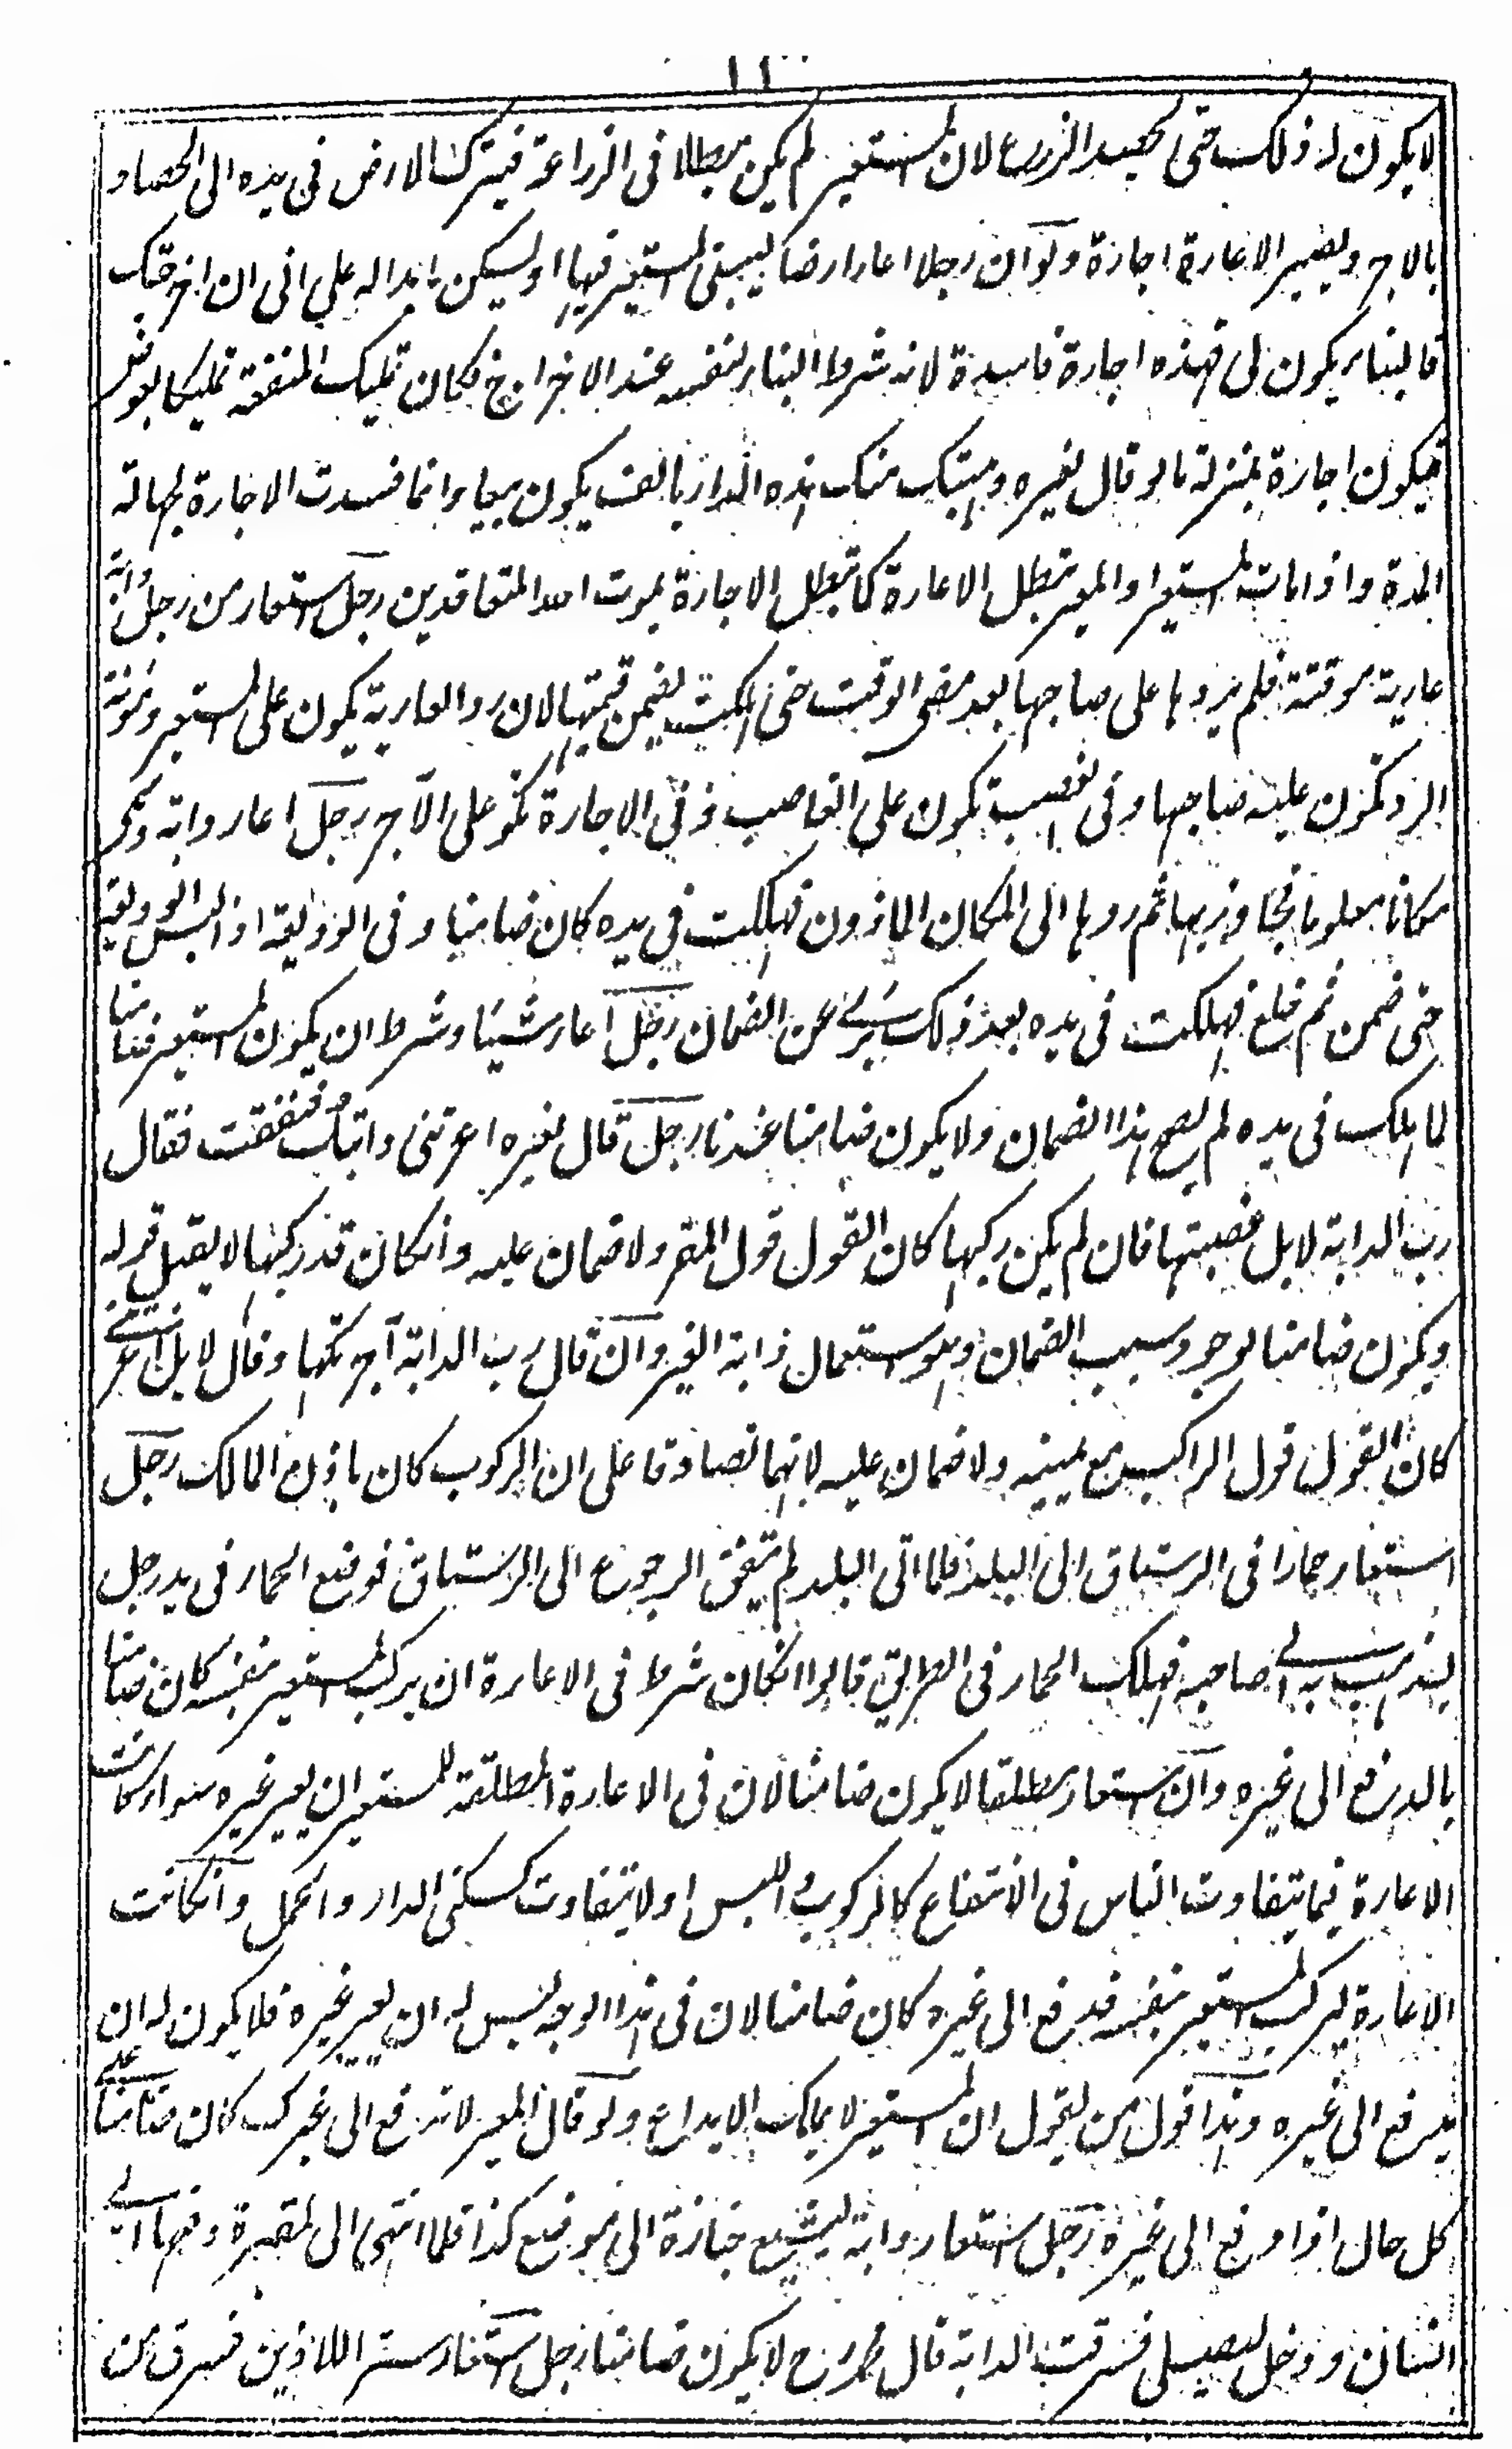 ١١
لا يكون له ذلك حتى يحصد الزرع لان المستعير لم يكن مبطلا فى الزراعة فيترك الارض فى يده الى الحصاد
بالاجر ويصير الاعارة اجارة ولو ان رجلا اعار ارضا ليبنى المستعير فيها او ليسكن ما بدا له على انى ان اخرجتك
فالبناء يكون لى فهذه اجارة فاسدة لانه شرط البناء لنفسه عند الاخراج فكان تمليك المنفعة تمليكا بعوض
فيكون اجارة بمنزلة ما لو قال لغيره وهبتك منك هذه الدار بالف يكون بيعا وانما فسدت الاجارة لجهالة
المدة واذا مات المستعير او المعير تبطل الاعارة كما تبطل الاجارة بموت احد المتعاقدين رجل استعار من رجل دابة
عارية موقتة فلم يردها على صاحبها بعد مضى الوقت حتى هلكت يضمن قيمتها لان رد العارية يكون على المستعير ومؤنة
الرد تكون عليه صاحبها وفى الغصب تكون على الغاصب وفى الاجارة تكون على الآجر رجل اعار دابة وسمى
مكانا معلوما فجاوز بها ثم ردها الى المكان الماذون فهلكت فى يده كان ضامنا وفى الوديعة اذا لبس الوديعة
حتى ضمن ثم خلع فهلكت فى يده بعد ذلك برئ عن الضمان رجل اعار شيئا وشرط ان يكون المستعير ضامنا
لما هلك فى يده لم يصح هذا الضمان ولا يكون ضامنا عندنا رجل قال لغيره اعرتنى دابتك فنفقت فقال
رب الدابة لا بل غصبتها فان لم يكن ركبها كان القول قول المقر ولا ضمان عليه وانكان قد ركبها لا يقبل قوله
ويكون ضامنا لوجود سبب الضمان وهو استعمال دابة الغير وان قال رب الدابة آجرتكها وقال لا بل اعرتنى
كان القول قول الراكب مع يمينه ولا ضمان عليه لانهما تصادقا على ان الركوب كان باذن المالك رجل
استعار حمارا فى الرستاق الى البلد فلما اتى البلد لم يتفق الرجوع الى الرستاق فوضع الحمار فى يد رجل
ليذهب به الى صاحبه فهلك الحمار فى الطريق قالوا انكان شرط فى الاعارة ان يركب المستعير بنفسه كان ضامنا
بالدفع الى غيره وان استعار مطلقا لا يكون ضامنا لان فى الاعارة المطلقة للمستعير ان يعير غيره سواء كانت
الاعارة فيما يتفاوت الناس فى الانتفاع كالركوب واللبس او لا يتفاوت كسكنى الدار والحمل وانكانت
الاعارة ليركب المستعير بنفسه فدفع الى غيره كان ضامنا لان فى هذا الوجه ليس له ان يعير غيره فلا يكون له ان
يدفع الى غيره وهذا قول من يقول ان المستعير لا يملك الايداع ولو قال المعير لا تدفع الى غيرك كان ضامنا على
كل حال اذا دفع الى غيره رجل استعار دابة ليشيع جنازة الى موضع كذا فلما انتهى الى المقبرة دفعها الى
انسان ودخل ليصلى فسرقت الدابة قال محمد رح لا يكون ضامنا رجل استعار ستر اللاذين فسرق من